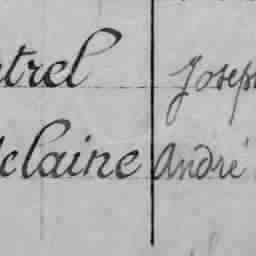 trel Joseph
elaine André